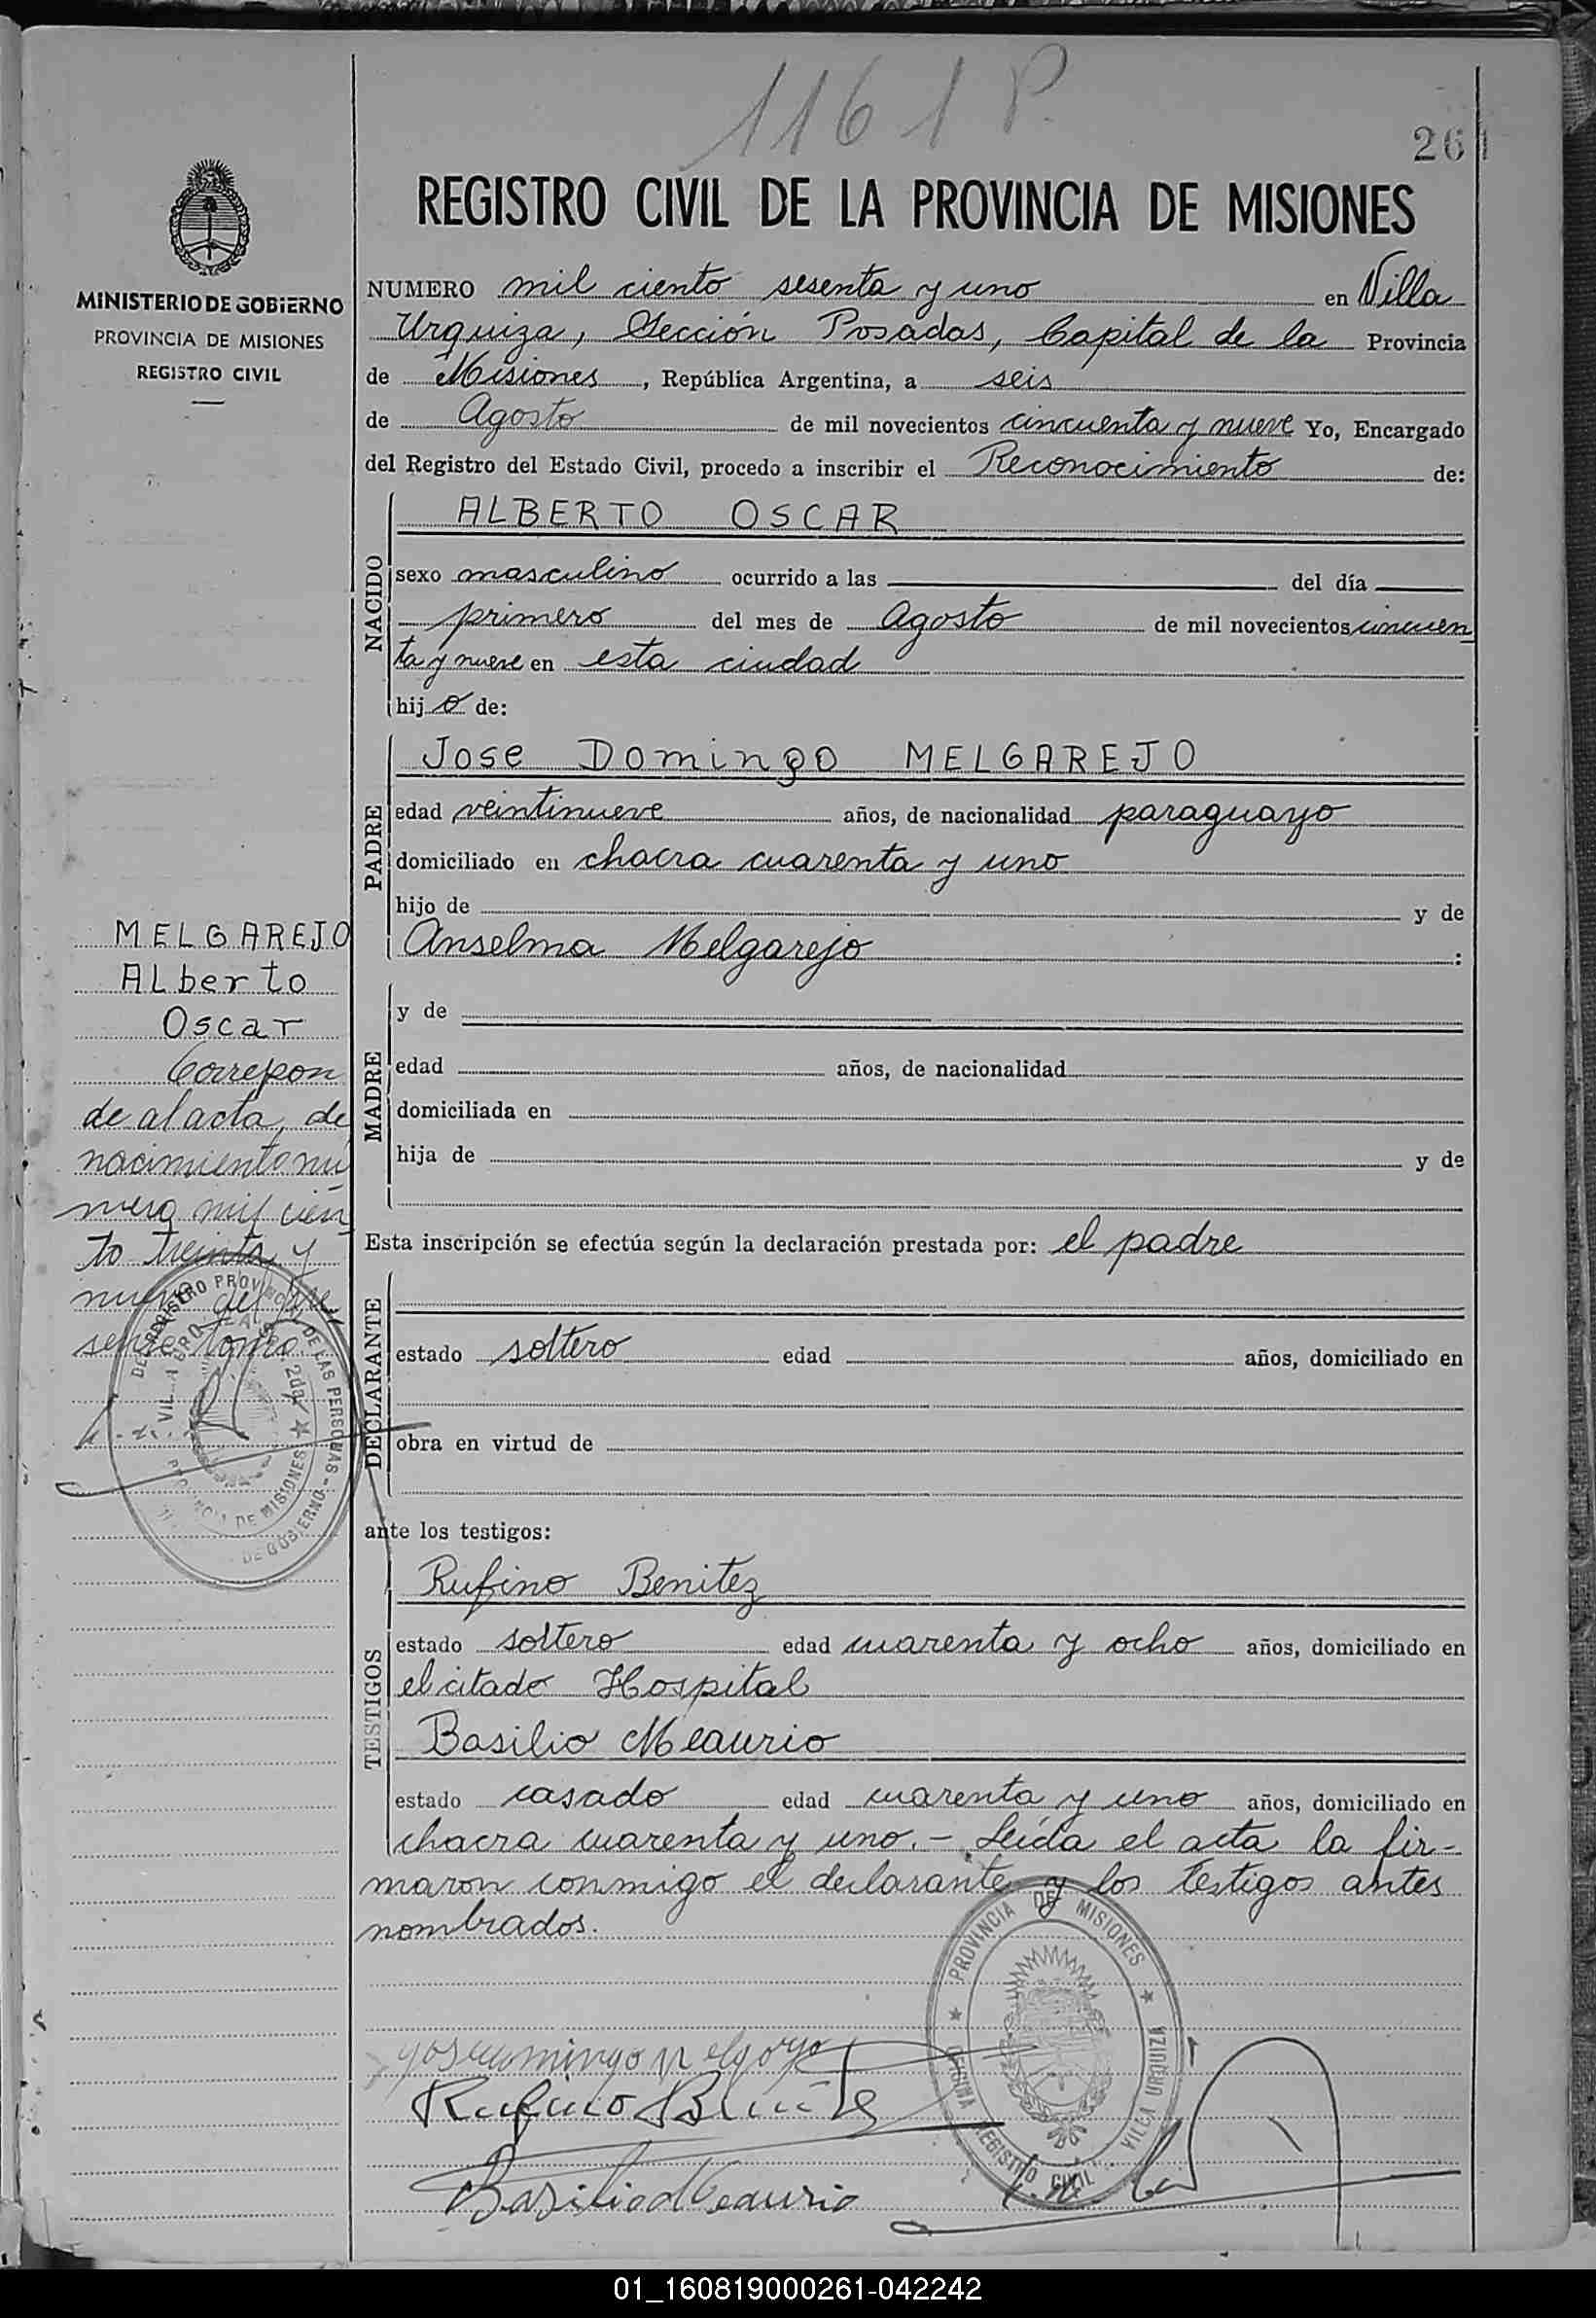 1161 P.
261
REGISTRO CIVIL DE LA PROVINCIA DE MISIONES
MINISTERIO DE GOBIERNO
PROVINCIA DE MISIONES
REGISTRO CIVIL
NUMERO mil ciento sesenta y uno en Villa
Urquiza, Sección Posadas, Capital de la Provincia
de Misiones, República Argentina, a seis
de Agosto de mil novecientos cincuenta y nueve Yo, Encargado
del Registro del Estado Civil, procedo a inscribir el Reconocimiento de:
NACIDO
ALBERTO OSCAR
sexo masculino ocurrido a las del día
primero del mes de Agosto de mil novecientos cincuen
ta y nueve en esta ciudad
hijo de:
PADRE
Jose Domingo MELGAREJO
edad veintinueve años, de nacionalidad paraguayo
domiciliado en chacra cuarenta y uno
hijo de y de
Anselma Melgarejo :
MADRE
y de
edad años, de nacionalidad
domiciliada en
hija de y de
Esta inscripción se efectúa según la declaración prestada por: el padre
DECLARANTE
estado soltero edad años, domiciliado en
obra en virtud de
ante los testigos:
TESTIGOS
Rufino Benitez
estado soltero edad cuarenta y ocho años, domiciliado en
el citado Hospital
Basilio Meaurio
estado casado edad cuarenta y uno años, domiciliado en
chacra cuarenta y uno.- Leída el acta la fir-
maron conmigo el declarante y los testigos antes
nombrados.
MELGAREJO
ALberto
Oscar
Correpon
de al acta de
nacimiento nú
mero mil cien
to treinta y
nueve del pre
sente tomo
REGISTRO PROVINCIAL DE LAS PERSONAS
DE GOBIERNO
PROVINCIA DE MISIONES
PROVINCIA DE MISIONES
OFICINA REGISTRO CIVIL VILLA URQUIZA
Rufino Benitez
Basilio Meaurio
01_160819000261-042242